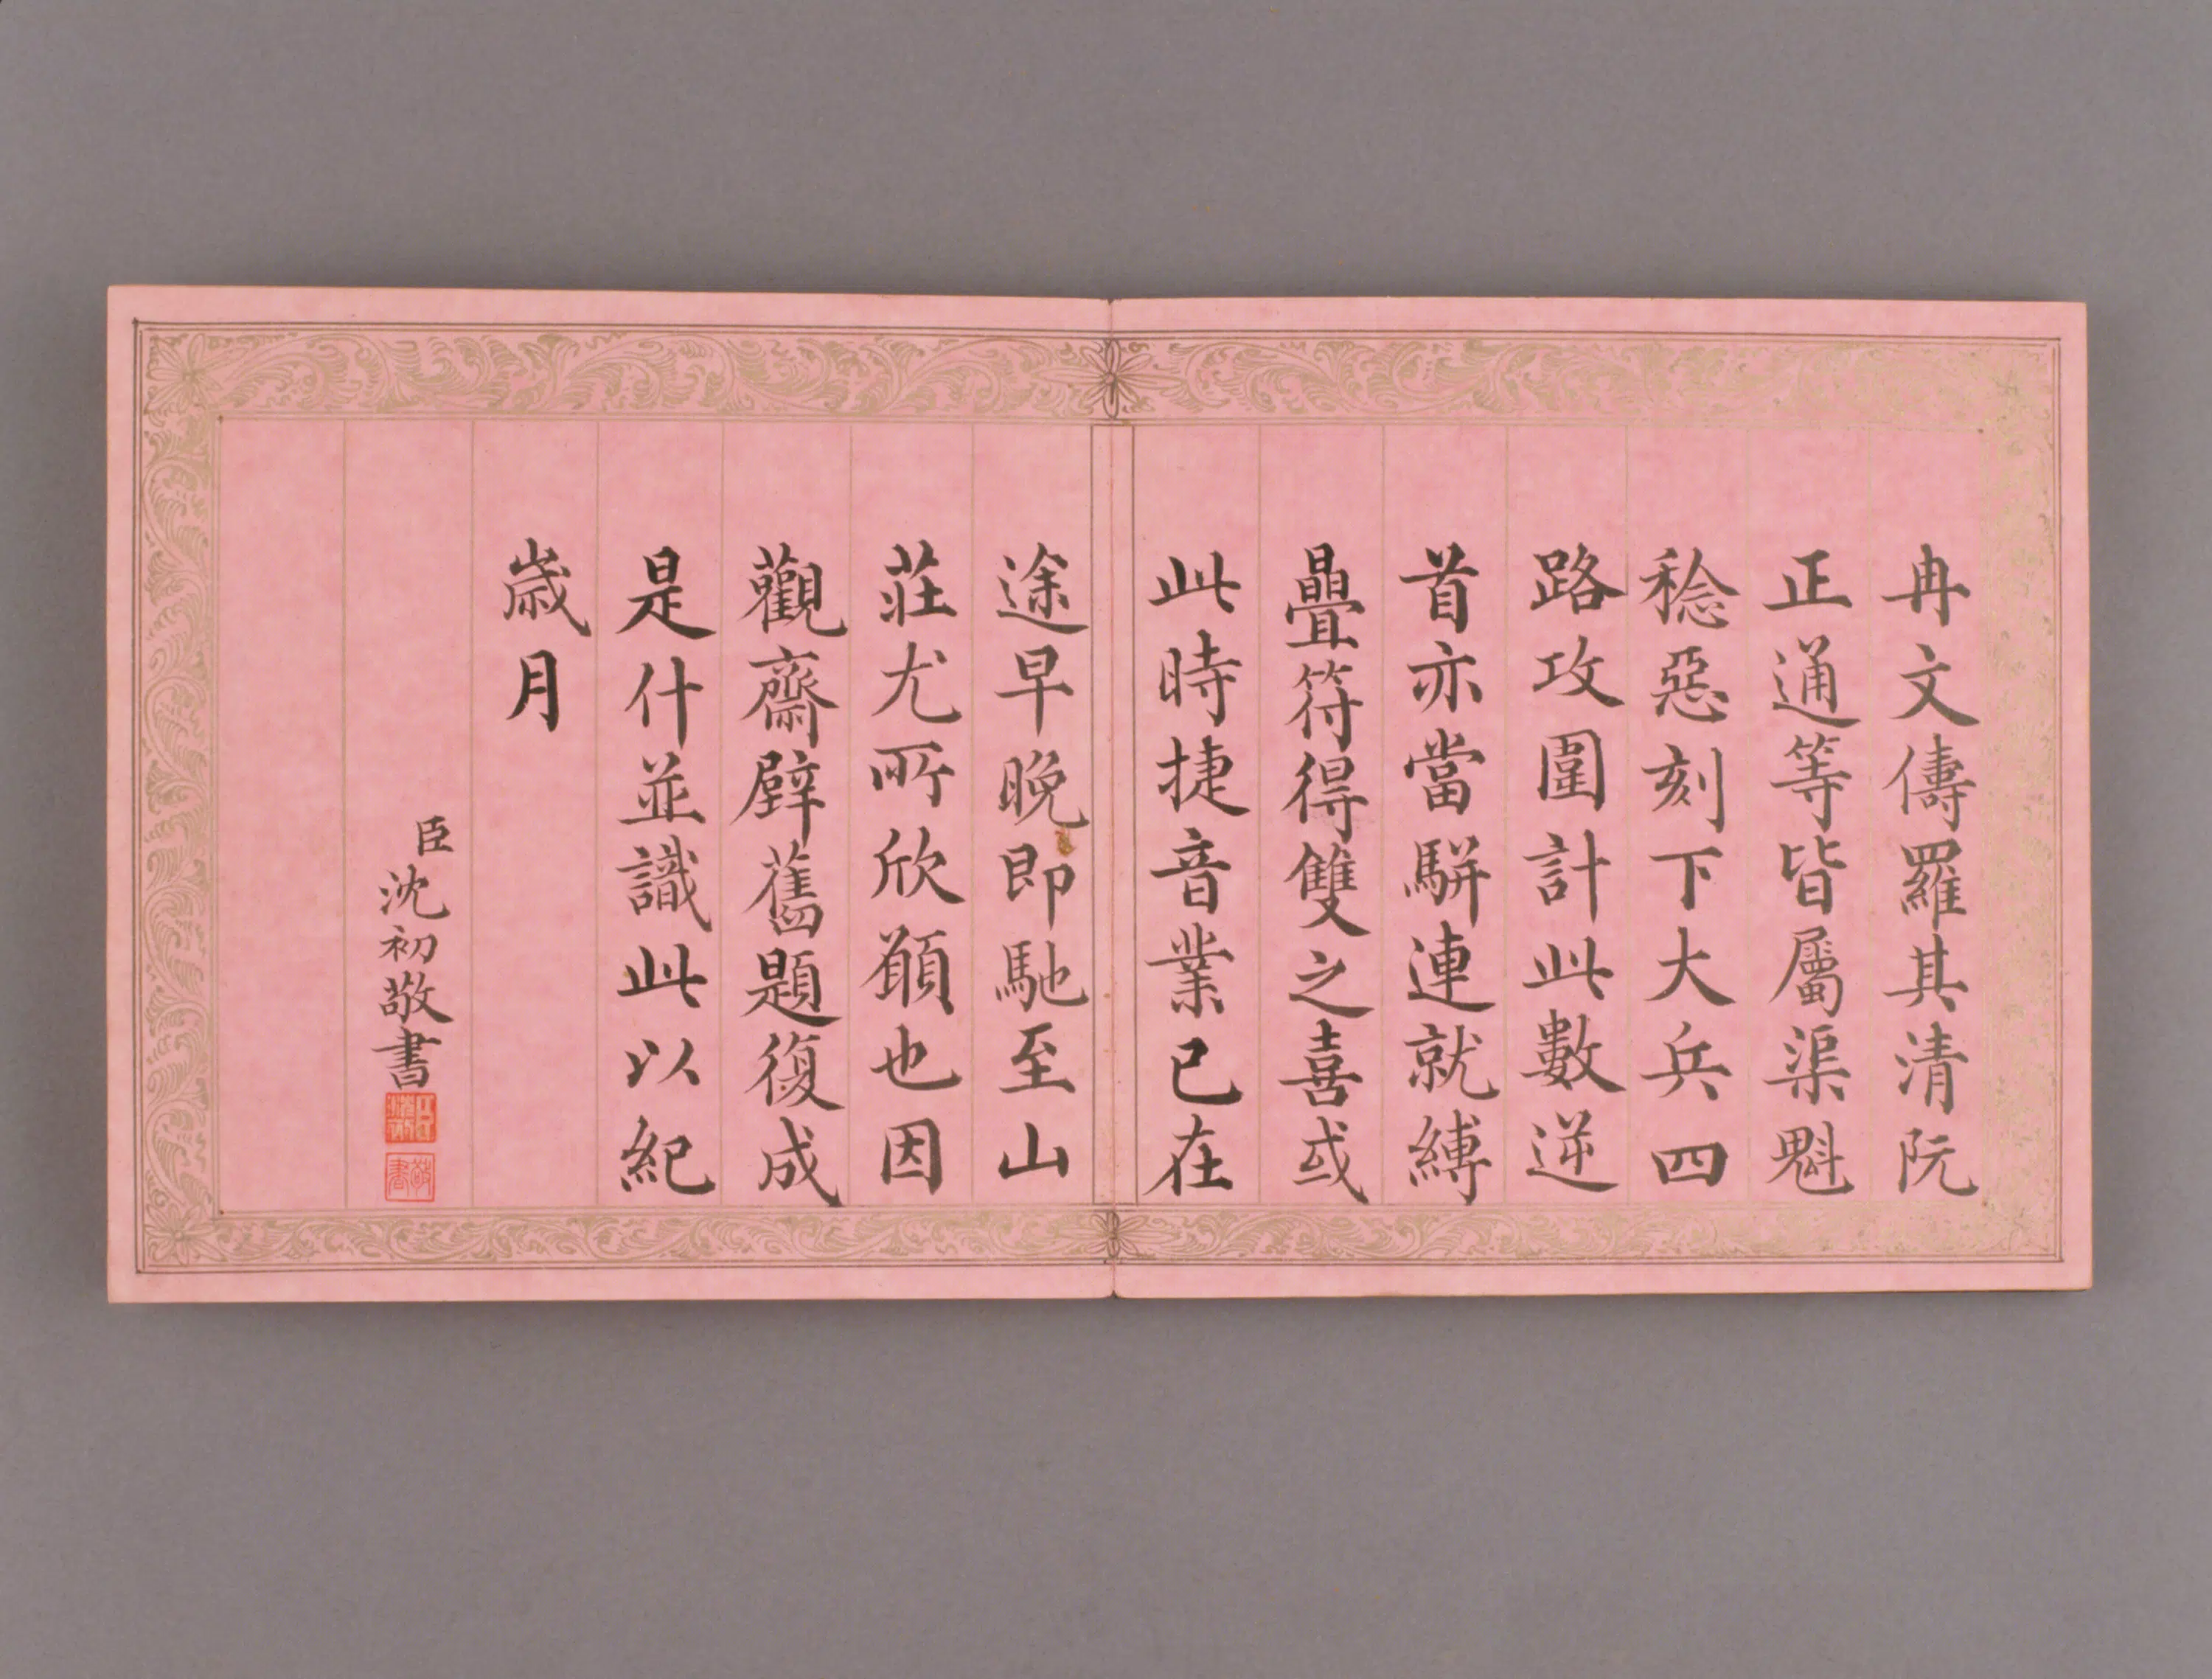 冉文儔羅其清阮
正通等皆屬渠魁
稔惡刻下大兵四
路攻圍計此數逆
首亦當駢連就縛
疊符得雙之喜或
此時捷音業已在
途早晚即馳至山
莊尤所欣願也因
觀齋壁舊題復成
是什並識此以紀
歲月
臣沈初敬書
臣沈初
敬書